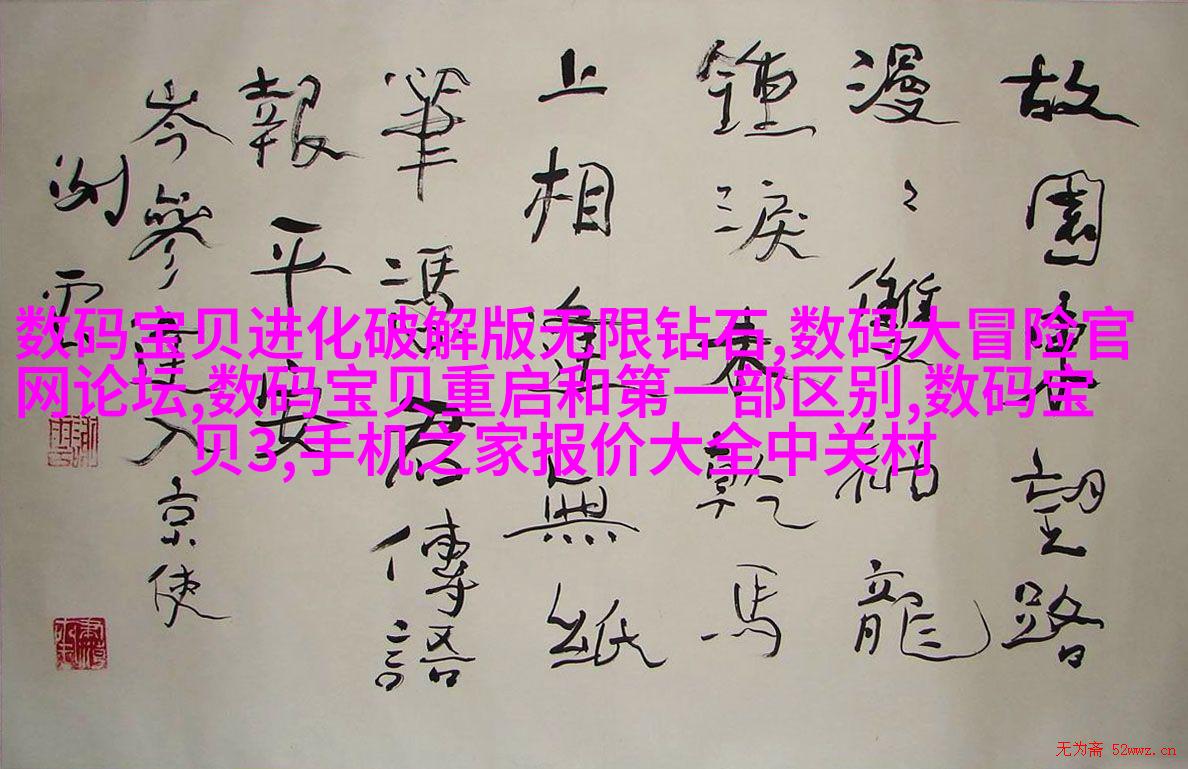 故園東望路
漫〻雙袖龍
鍾淚乾馬
上相逢無紙
筆馮君傳語
報平安
岑參逢入京使
数码宝贝进化破解版无限钻石,数码大冒险官
网论坛,数码宝贝重启和第一部区别,数码宝
贝3,手机之家报价大全中关村
无为斋 52wwz.cn